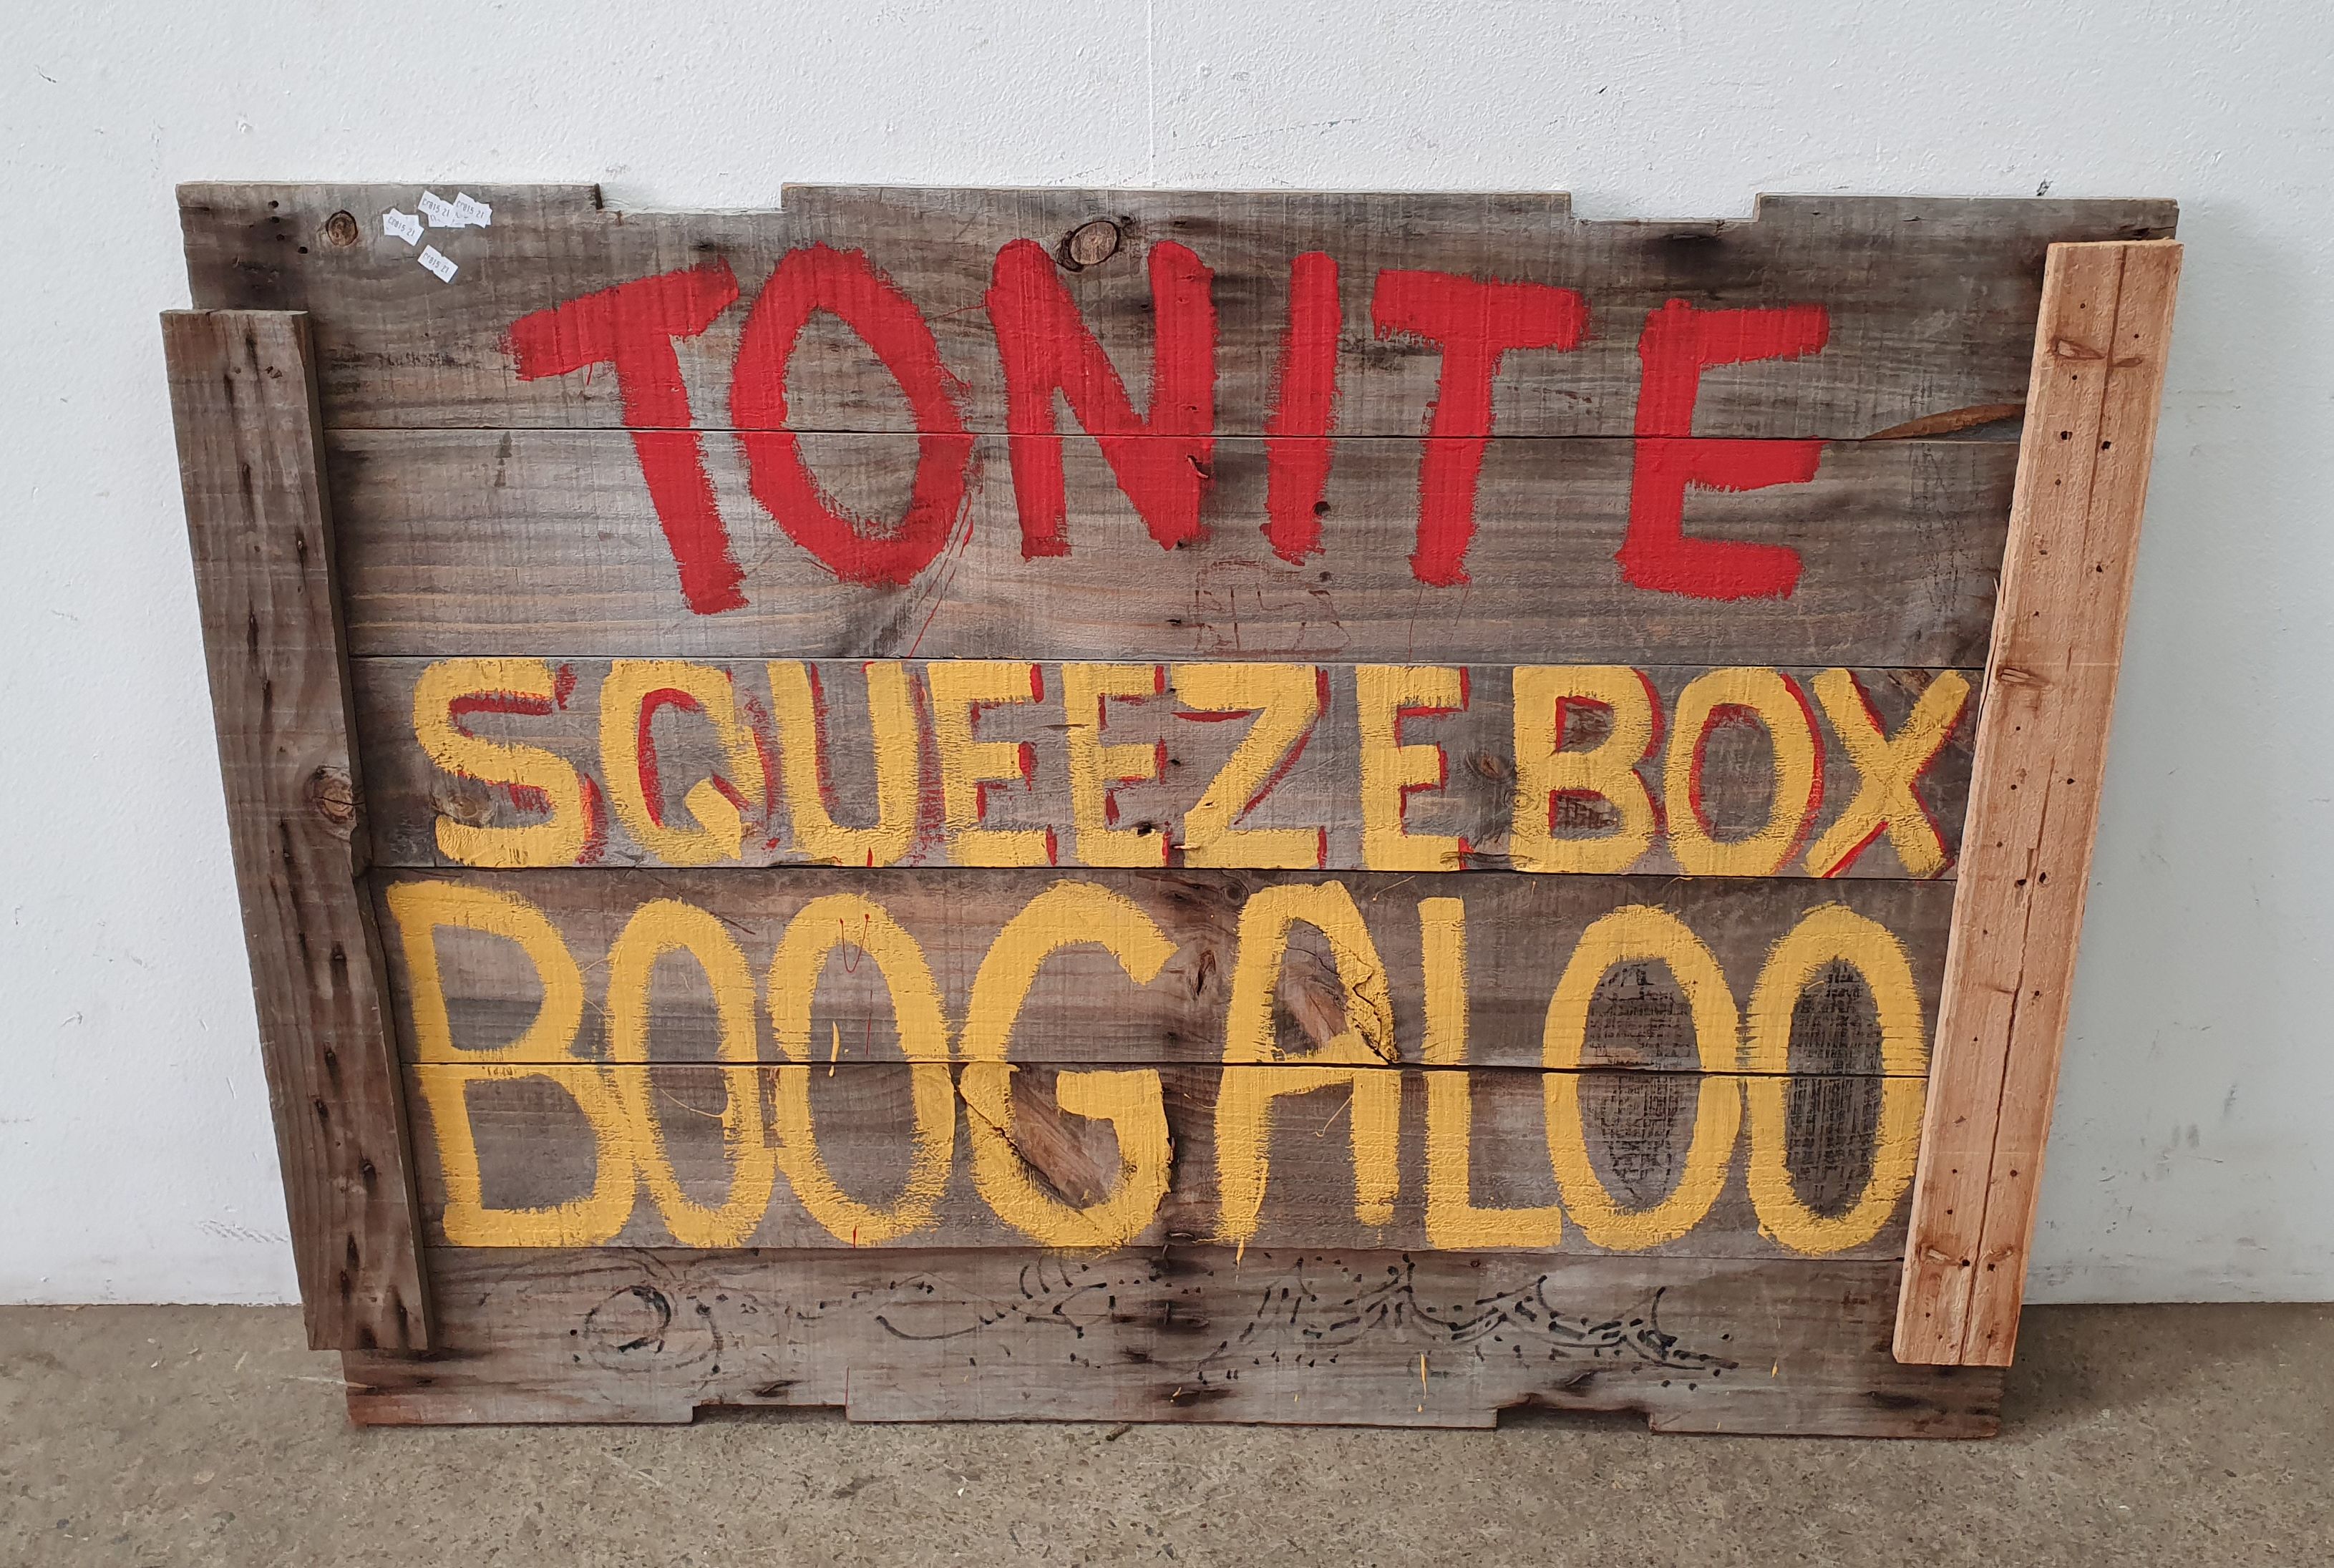 TONITE
SQUEEZEBOX
BOOGALOO